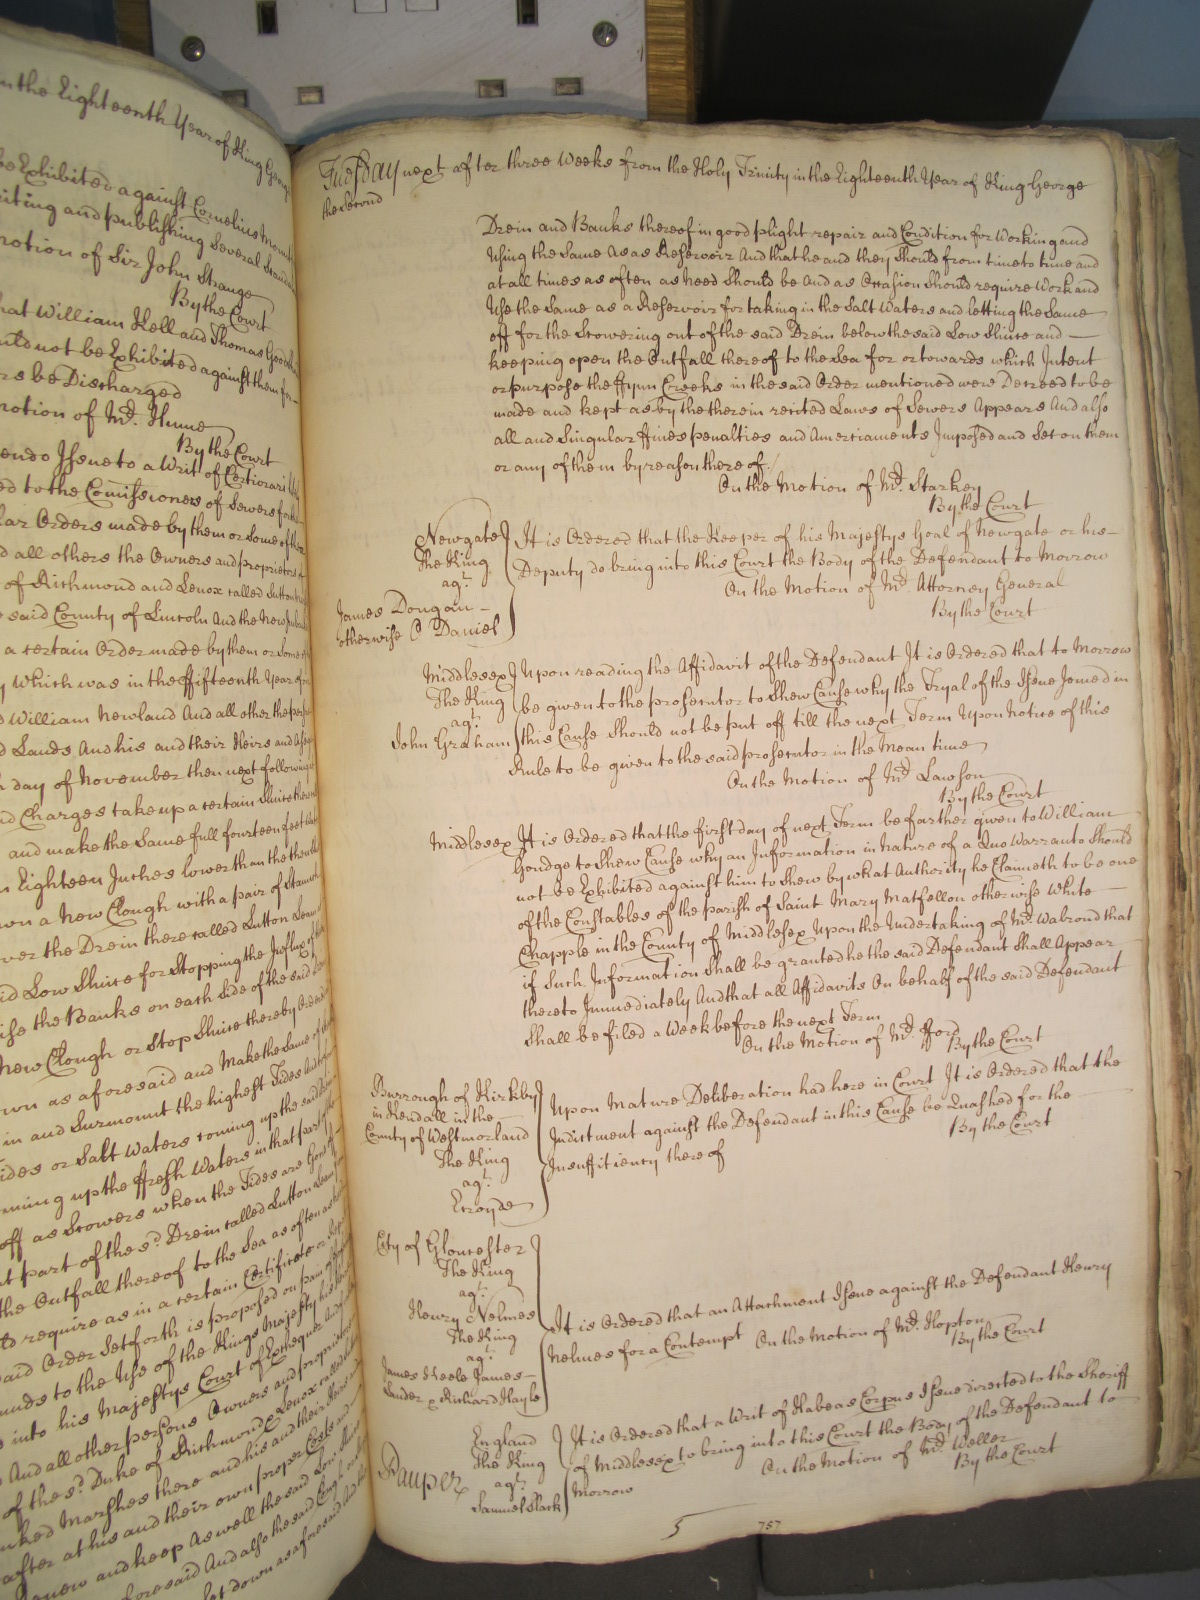 in the Eighteenth Year of King George
be Exhibited against Cornelius
riting and publishing Several
motion of Sir John Strange
By the Court
hat William Hell and Thomas
uld not be Exhibited against them for
rs be Discharged
motion of Mr. Hume
By the Court
endo Issue to a Writ of Certiorari
ed to the Comissioners of Sewers for
lar Orders made by them or Some of them
d all others the Owners and proprietors
of Richmond and Lenox called Sutton
e said County of Lincoln And the New
a certain Order made by them or Some
y Which was in the ffifteenth Year of
d William Newland And all other the
d Lands And his and their Heirs and
day of November then next following
nd Charges take up a certain Sluice
and make the Same full fourteen feet
n Eighteen Inches lower than the
own a New Clough with a pair of
over the Drein there called Sutton
id Low Sluice for Stopping the Influx of
ise the Banks on each Side of the said
New Clough or Stop Sluice thereby
wn as aforesaid and Make the Same of
in and Surmount the highest Tides And
ides or Salt Waters coming up the said
ming up the ffresh Waters in that part
off as Scowers when the Tides are
at part of the sd. Drein called Sutton
the Outfall thereof to the Sea as often as
ld require as in a certain Certificate or
aid Order Setforth is proposed on pain of
unds to the Use of the Kings Majesty his
d into his Majestys Court of Exchequer And
And all other persons Owners and proprietors
of the sd. Duke of Richmond & Lenox called
nked Marshes there and his and their Heirs
after at his and their own proper Costs and
new and keep As well the said Low Sluice
fore said And also the said
et down as aforesaid
Tuesday next after three Weeks from the Holy Trinity in the Eighteenth Year of King George
the Second
Drein and Banks thereof in good plight repair and Condition for Working and
Using the Same As a Reservoir And that he and they Should from time to time and
at all times as often as Need Should be And as Occasion Should require Work and
Use the Same as a Reservoir for taking in the Salt Waters and letting the Same
off for the Scowering out of the said Drein below the said Low Sluice and
keeping open the Outfall thereof to the Sea for or towards which Intent
or purpose the ffynn Creeks in the said Order mentioned were Decreed to be
made and kept as by the therein recited Laws of Sewers Appears And also
all and Singular ffines penalties and Amerciaments Imposed and Set on them
or any of them by reason there of
On the Motion of Mr. Starkey
By the Court
Newgate
The King
agt.
James Dongan
otherwise O Daniel
It is Ordered that the Keeper of his Majestys Goal of Newgate or his
Deputy do bring into this Court the Body of the Defendant to Morrow
On the Motion of Mr. Attorney General
By the Court
Middlesex
The King
agt.
John Graham
Upon reading the Affidavit of the Defendant It is Ordered that to Morrow
be given to the prosecutor to Shew Cause why the Tryal of the Issue Joined in
this Cause Should not be put off till the next Term Upon Notice of this
Rule to be given to the said prosecutor in the Mean time
On the Motion of Mr. Lawson
By the Court
Middlesex It is Ordered that the first day of next Term be farther given to William
Goudge to Shew Cause why an Information in Nature of a Quo Warranto Should
not be Exhibited against him to Shew by what Authority he Claimeth to be one
of the Constables of the parish of Saint Mary Matfellon otherwise White
Chapple in the County of Middlesex Upon the Undertaking of Mr. Walrond that
if Such Information Shall be granted he the said Defendant Shall Appear
thereto Immediately And that all Affidavits On behalf of the said Defendant
Shall be filed a Week before the next Term
On the Motion of Mr. fford
By the Court
Burrough of Kirkby
in Kendall in the
County of Westmorland
The King
agt.
Croyde
Upon Mature Deliberation had here in Court It is Ordered that the
Indictment against the Defendant in this Cause be Quashed for the
Insufficiency there of
By the Court
City of Gloucester
The King
agt.
Henry Nelmes
The King
agt.
James Keele James
Lander & Richard Hayle
It is Ordered that an Attachment Issue against the Defendant Henry
Nelmes for a Contempt On the Motion of Mr. Hopton
By the Court
Pauper
England
The King
agt.
Samuel Slack
It is Ordered that a Writ of Habeas Corpus Issue directed to the Sheriff
of Middlesex to bring into this Court the Body of the Defendant to
Morrow
On the Motion of Mr. Weller
By the Court
5
757